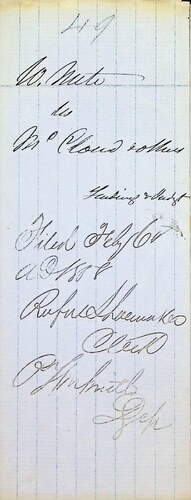 49
W. Mete
vs
McCloud & others
Findings & Judgt
Filed Feby 6th
AD 1858
Rufus Shoemaker
Clerk
Smith
Dpty